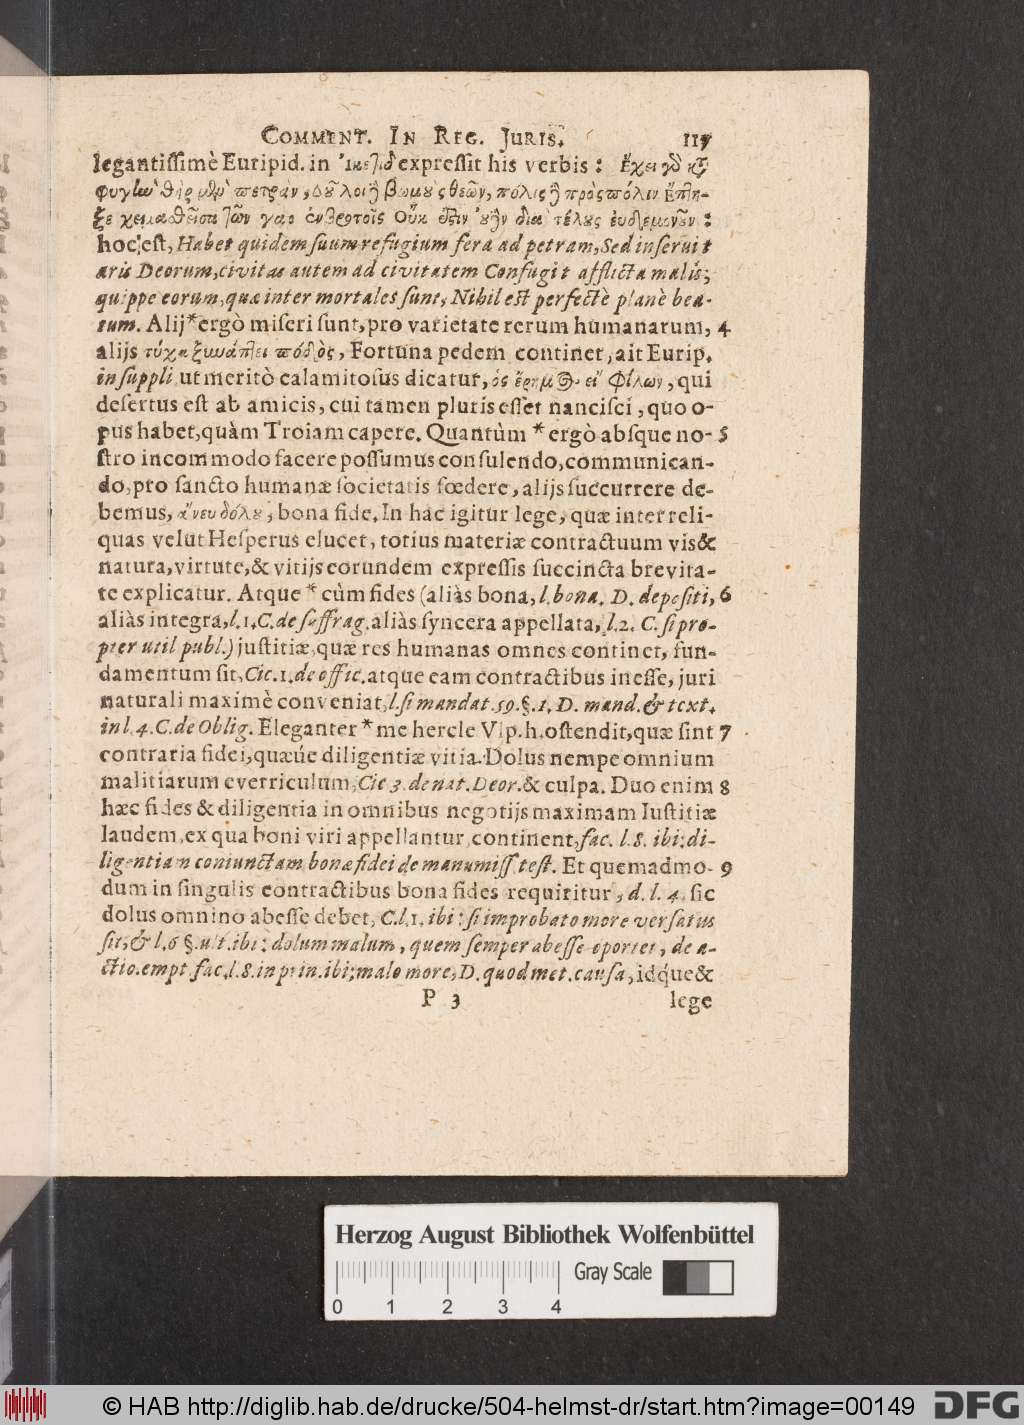 COMMENT. IN REG. JURIS. 117
legantissimè Euripid. in expressit his verbis: ἔχει
πέτραν, βωμοὺς θεῶν, πόλις πρὸς πόλιν ἔπτη-
ξε τέλους :
hoc est, Habet quidem suum refugium fera ad petram, Sed inseruit
aris Deorum, civitas autem ad civitatem Confugit afflicta malis;
quippe eorum, quæ inter mortales sunt, Nihil est perfectè planè bea-
tum. Alij * ergò miseri sunt, pro varietate rerum humanarum, 4
alijs ποδὸς, Fortuna pedem continet, ait Eurip.
in suppli ut meritò calamitosus dicatur, φίλων, qui
desertus est ab amicis, cui tamen pluris esset nancisci, quo o-
pus habet, quàm Troiam capere. Quantùm * ergò absque no- 5
stro incommodo facere possumus consulendo, communican-
do, pro sancto humanæ societatis fœdere, alijs succurrere de-
bemus, ἄνευ δόλου, bona fide. In hac igitur lege, quæ inter reli-
quas velut Hesperus elucet, totius materiæ contractuum vis &
natura, virtute, & vitijs eorundem expressis succincta brevita-
te explicatur. Atque * cùm fides (aliàs bona, l. bona. D. depositi, 6
aliàs integra, l. 1. C. de suffrag. aliàs syncera appellata, l. 2. C. si pro-
pter util publ.) justitiæ, quæ res humanas omnes continet, fun-
damentum sit, Cic. 1. de offic. atque eam contractibus inesse, juri
naturali maximè conveniat, l. si mandat. 59. §. 1. D. mand. & text.
in l. 4. C. de Oblig. Eleganter * me hercle Vlp. h. ostendit, quæ sint 7
contraria fidei, quæúe diligentiæ vitia. Dolus nempe omnium
malitiarum everriculum, Cic 3. de nat. Deor. & culpa. Duo enim 8
hæc fides & diligentia in omnibus negotijs maximam Iustitiæ
laudem, ex qua boni viri appellantur, continent, fac. l. 8. ibi: di-
ligentiam coniunctam bonæ fidei de manumiss. test. Et quemadmo- 9
dum in singulis contractibus bona fides requiritur, d. l. 4. sic
dolus omnino abesse debet, C. l. 1. ibi: si improbato more versatus
sit, & l. 6 §. ult. ibi: dolum malum, quem semper abesse oportet, de a-
ctio. empt fac. l. 8. in prin. ibi: malo more, D. quod met. causa, idque &
P 3 lege
Herzog August Bibliothek Wolfenbüttel
Gray Scale
0 1 2 3 4
© HAB http://diglib.hab.de/drucke/504-helmst-dr/start.htm?image=00149 DFG